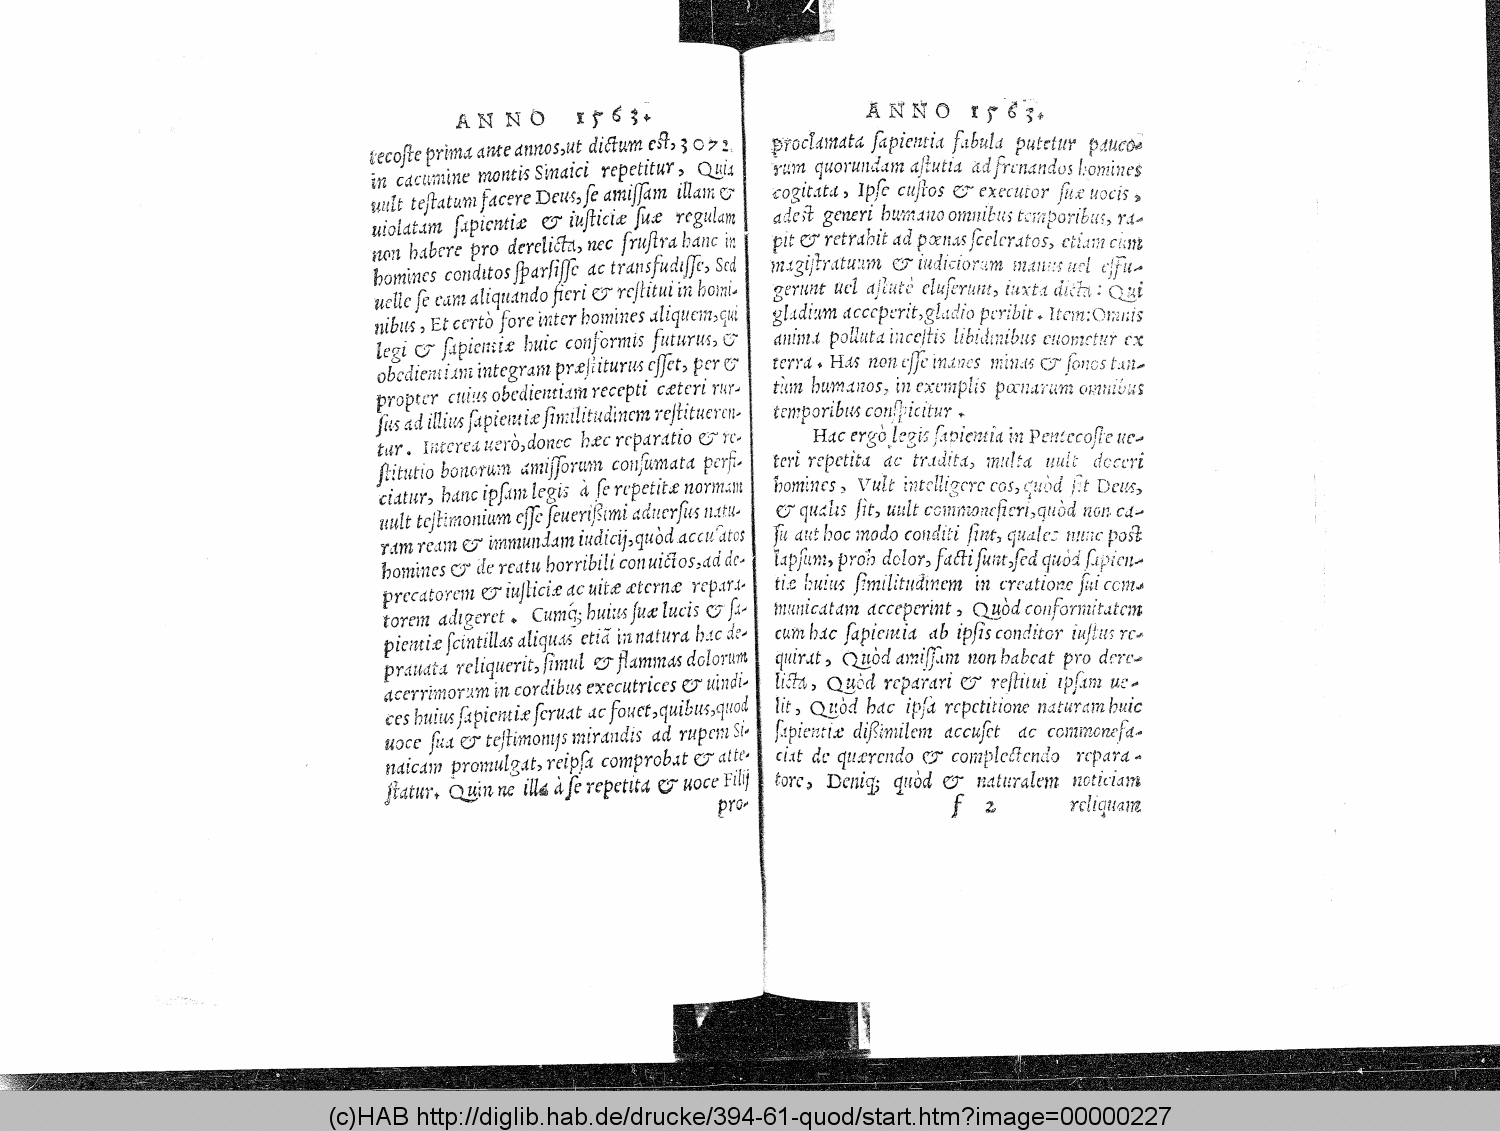 ANNO 1563.
tecoſte prima ante annos, ut dictum eſt, 3072.
in cacumine montis Sinaici repetitur, Quia
uult teſtatum facere Deus, ſe amiſſam illam &
uiolatam ſapientiæ & iuſticiæ ſuæ regulam
non habere pro derelicta, nec fruſtra hanc in
homines conditos ſparſiſſe ac transfudiſſe, Sed
uelle ſe eam aliquando fieri & reſtitui in homi-
nibus, Et certò fore inter homines aliquem, qui
legi & ſapientiæ huic conformis futurus, &
obedientiam integram præſtiturus eſſet, per &
propter cuius obedientiam recepti cæteri rur-
ſus ad illius ſapientiæ ſimilitudinem reſtitueren-
tur. Interea uerò, donec hæc reparatio & re-
ſtitutio bonorum amiſſorum conſumata perfi-
ciatur, hanc ipſam legis à ſe repetitæ normam
uult teſtimonium eſſe ſeuerißimi aduerſus natu-
ram ream & immundam iudicij, quòd accuſatos
homines & de reatu horribili conuictos, ad de-
precatorem & iuſticiæ ac uitæ æternæ repara-
torem adigeret. Cumq́; huius ſuæ lucis & ſa-
pientiæ ſcintillas aliquas etiã in natura hac de-
prauata reliquerit, ſimul & flammas dolorum
acerrimorum in cordibus executrices & uindi-
ces huius ſapientiæ ſeruat ac fouet, quibus, quod
uoce ſua & teſtimonijs mirandis ad rupem Si-
naicam promulgat, reipſa comprobat & atte-
ſtatur. Quin ne illa à ſe repetita & uoce Filij
pro-
ANNO 1563.
proclamata ſapientia fabula putetur pauco-
rum quorundam aſtutia ad frenandos homines
cogitata, Ipſe cuſtos & executor ſuæ uocis,
adeſt generi humano omnibus temporibus, ra-
pit & retrahit ad pœnas ſceleratos, etiam cum
magiſtratuum & iudiciorum manus uel effu-
gerunt uel aſtutè eluſerunt, iuxta dicta: Qui
gladium acceperit, gladio peribit. Item: Omnis
anima polluta inceſtis libidinibus euometur ex
terra. Has non eſſe inanes minas & ſonos tan-
tùm humanos, in exemplis pœnarum omnibus
temporibus conſpicitur.
Hac ergò legis ſapientia in Pentecoſte ue-
teri repetita ac tradita, multa uult doceri
homines, Vult intelligere eos, quòd ſit Deus,
& qualis ſit, uult commonefieri, quòd non ca-
ſu aut hoc modo conditi ſint, quales nunc poſt
lapſum, proh dolor, facti ſunt, ſed quòd ſapien-
tiæ huius ſimilitudinem in creatione ſui com-
municatam acceperint, Quòd conformitatem
cum hac ſapientia ab ipſis conditor iuſtus re-
quirat, Quòd amiſſam non habeat pro dere-
licta, Quòd reparari & reſtitui ipſam ue-
lit, Quòd hac ipſa repetitione naturam huic
ſapientiæ dißimilem accuſet ac commonefa-
ciat de quærendo & complectendo repara-
tore, Deniq; quòd & naturalem noticiam
f 2 reliquam
(c)HAB http://diglib.hab.de/drucke/394-61-quod/start.htm?image=00000227